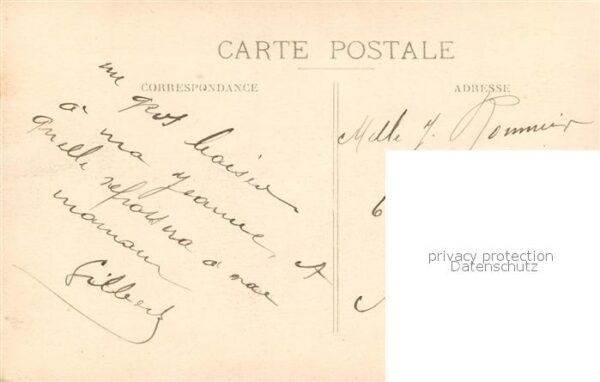 CARTE POSTALE
CORRESPONDANCE
un gros baiser
à ma Jeanne,
quelle repassera à ma
maman
Gilbert
ADRESSE
Melle J.
6
privacy protection
Datenschutz